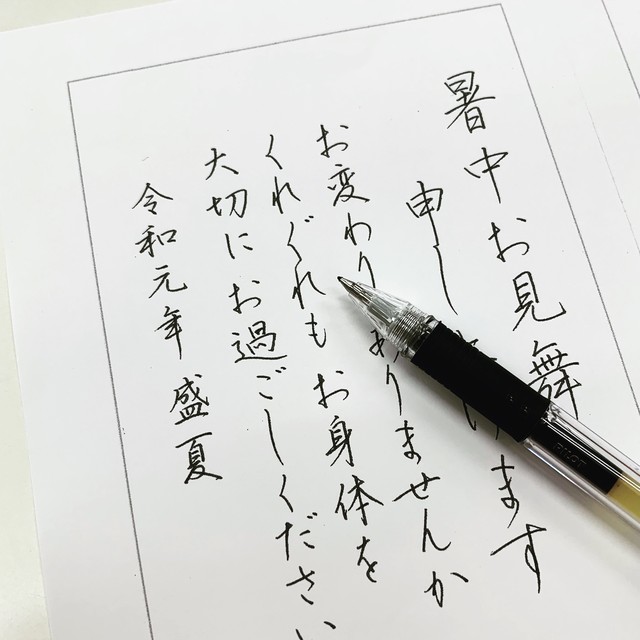 暑中お見舞
申し上げます
お変わりありませんか
くれぐれもお身体を
大切にお過ごしください
令和元年 盛夏